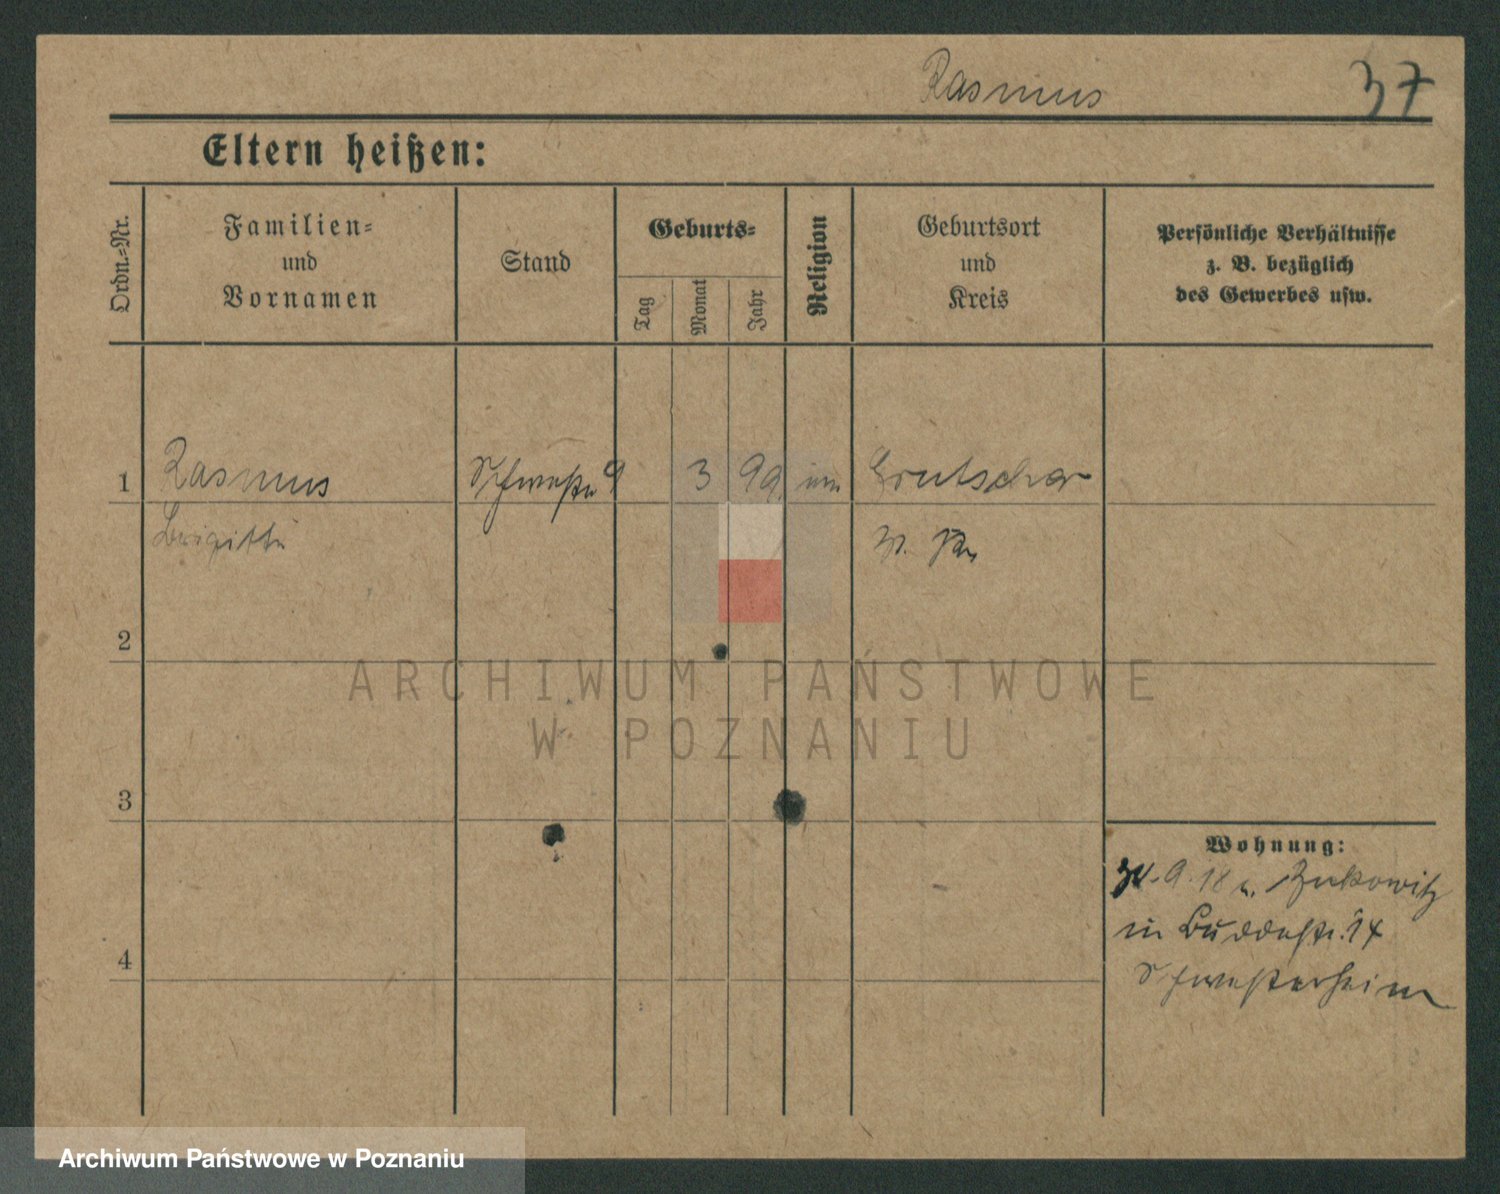 Rasmus 37
Eltern heißen:
Ordn.-Nr.
Familien-
und
Vornamen
Stand
Geburts-
Tag
Monat
Jahr
Religion
Geburtsort
und
Kreis
Persönliche Verhältnisse
z. B. bezüglich
des Gewerbes usw.
1 Rasmus Schwester 9 3 99
Brigitte
2
3
4
Wohnung:
9. 18 v. Zirkowitz
in Buddestr. 14
Schwesterheim
ARCHIWUM PAŃSTWOWE
W POZNANIU
Archiwum Państwowe w Poznaniu